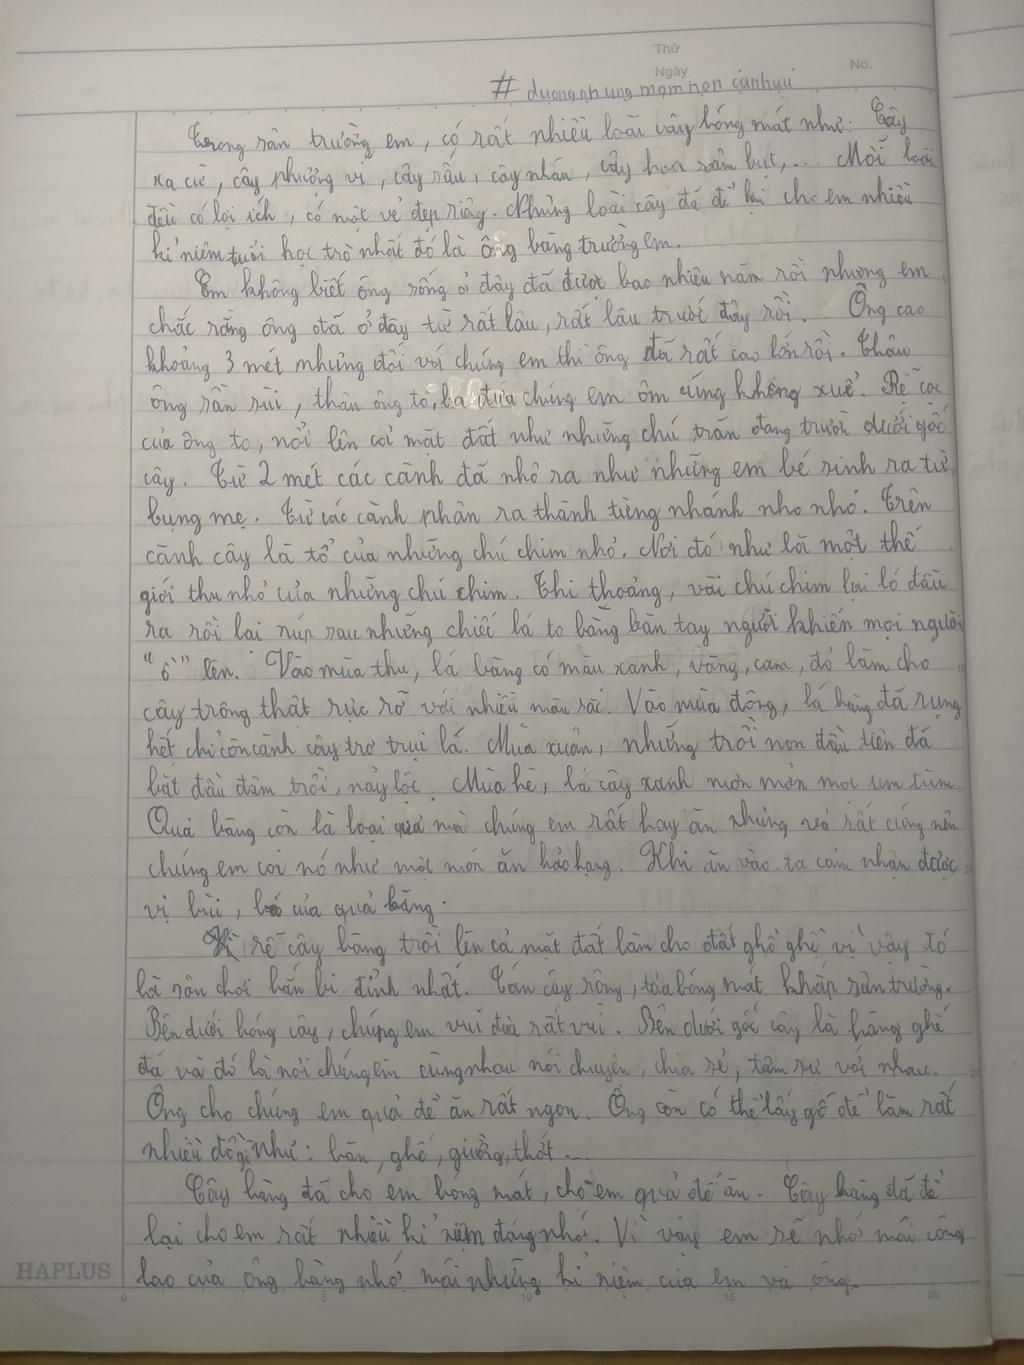 Thứ
Ngày No.
# duongnhungmamnon canhuu
Trong sân trường em, có rất nhiều loài cây bóng mát như: Cây
xà cừ, cây phượng vĩ, cây sấu, cây nhãn, cây hoa râm bụt,... Mỗi loài
đều có lợi ích, có một vẻ đẹp riêng. Những loài cây đã để lại cho em nhiều
kỉ niệm tuổi học trò nhất đó là ông bàng trường em.
Em không biết ông sống ở đây đã được bao nhiêu năm rồi nhưng em
chắc rằng ông đã ở đây từ rất lâu, rất lâu trước đây rồi. Ông cao
khoảng 3 mét nhưng đối với chúng em thì ông đã rất cao lớn rồi. Thân
ông sần sùi, thân ông to, ba đứa chúng em ôm cũng không xuể. Rễ cả
của ông to, nổi lên cả mặt đất như những chú trăn đang trườn dưới gốc
cây. Từ 2 mét các cành đã nhô ra như những em bé sinh ra từ
bụng mẹ. Từ các cành phân ra thành từng nhánh nho nhỏ. Trên
cành cây là tổ của những chú chim nhỏ. Nơi đó như là một thế
giới thu nhỏ của những chú chim. Thi thoảng, vài chú chim lại ló đầu
ra rồi lại núp sau những chiếc lá to bằng bàn tay người khiến mọi người
"ồ" lên. Vào mùa thu, lá bàng có màu xanh, vàng, cam, đỏ làm cho
cây trông thật rực rỡ với nhiều màu sắc. Vào mùa đông, lá bàng đã rụng
hết chỉ còn cành cây trơ trụi lá. Mùa xuân, những trồi non đầu tiên đã
bắt đầu đâm trồi, nảy lộc. Mùa hè, lá cây xanh mơn mởn um tùm.
Quả bàng còn là loại quả mà chúng em rất hay ăn nhưng vỏ rất cứng nên
chúng em coi nó như một món ăn hảo hạng. Khi ăn vào ta cảm nhận được
vị bùi, của quả bàng.
Vì rễ cây bàng trồi lên cả mặt đất làm cho đất ghồ ghề vì vậy đó
là sân chơi bắn bi đỉnh nhất. Tán cây rộng, tỏa bóng mát khắp sân trường.
Bên dưới bóng cây, chúng em vui đùa rất vui. Bên dưới gốc cây là hàng ghế
đá và đó là nơi chúng em cùng nhau nói chuyện, chia sẻ, tâm sự với nhau.
Ông cho chúng em quả để ăn rất ngon. Ông còn có thể lấy gỗ để làm rất
nhiều đồ gỗ như: bàn, ghế, giường, thớt...
Cây bàng đã cho em bóng mát, cho em quả để ăn. Cây bàng đã để
lại cho em rất nhiều kỉ niệm đáng nhớ. Vì vậy em sẽ nhớ mãi công
lao của ông bàng nhớ mãi những kỉ niệm của em và ông.
HAPLUS
0 5 10 15 20